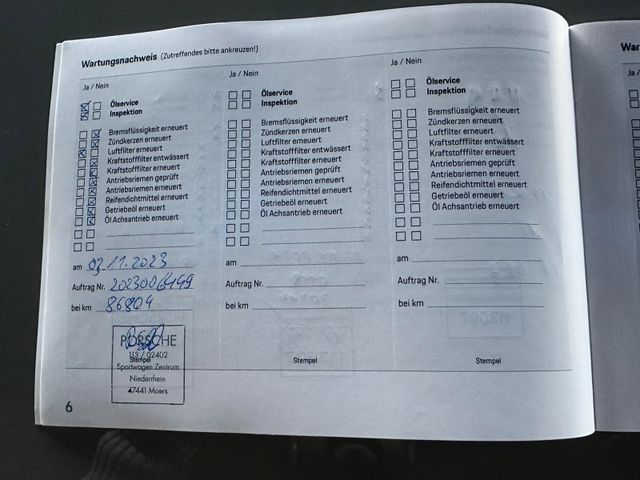 Wartungsnachweis (Zutreffendes bitte ankreuzen!)
Ja / Nein
Ölservice
Inspektion
Bremsflüssigkeit erneuert
Zündkerzen erneuert
Luftfilter erneuert
Kraftstofffilter entwässert
Kraftstofffilter erneuert
Antriebsriemen geprüft
Antriebsriemen erneuert
Reifendichtmittel erneuert
Getriebeöl erneuert
Öl Achsantrieb erneuert
am 03.11.2023
Auftrag Nr. 2023006499
bei km 86804
PORSCHE
113 / 02402
Stempel
Sportwagen Zentrum
Niederrhein
47441 Moers
6
Ja / Nein
Ölservice
Inspektion
Bremsflüssigkeit erneuert
Zündkerzen erneuert
Luftfilter erneuert
Kraftstofffilter entwässert
Kraftstofffilter erneuert
Antriebsriemen geprüft
Antriebsriemen erneuert
Reifendichtmittel erneuert
Getriebeöl erneuert
Öl Achsantrieb erneuert
am
Auftrag Nr.
bei km
Stempel
Ja / Nein
Ölservice
Inspektion
Bremsflüssigkeit erneuert
Zündkerzen erneuert
Luftfilter erneuert
Kraftstofffilter entwässert
Kraftstofffilter erneuert
Antriebsriemen geprüft
Antriebsriemen erneuert
Reifendichtmittel erneuert
Getriebeöl erneuert
Öl Achsantrieb erneuert
am
Auftrag Nr.
bei km
Stempel
War
Ja /
am
Auftr
bei k